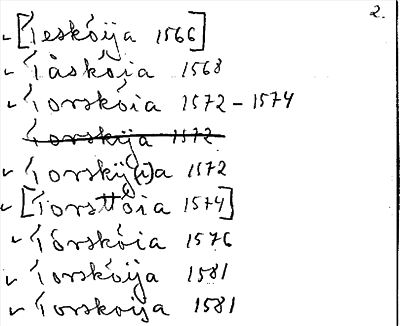 2.
[Teskóija 1566]
Tåskŏia 1568
Torskóia 1572 – 1574
Torskija 1572
Torskij(i)a 1572
[Torsttŏia 1574]
Tórskóia 1576
Torskóija 1581
Torskoija 1581